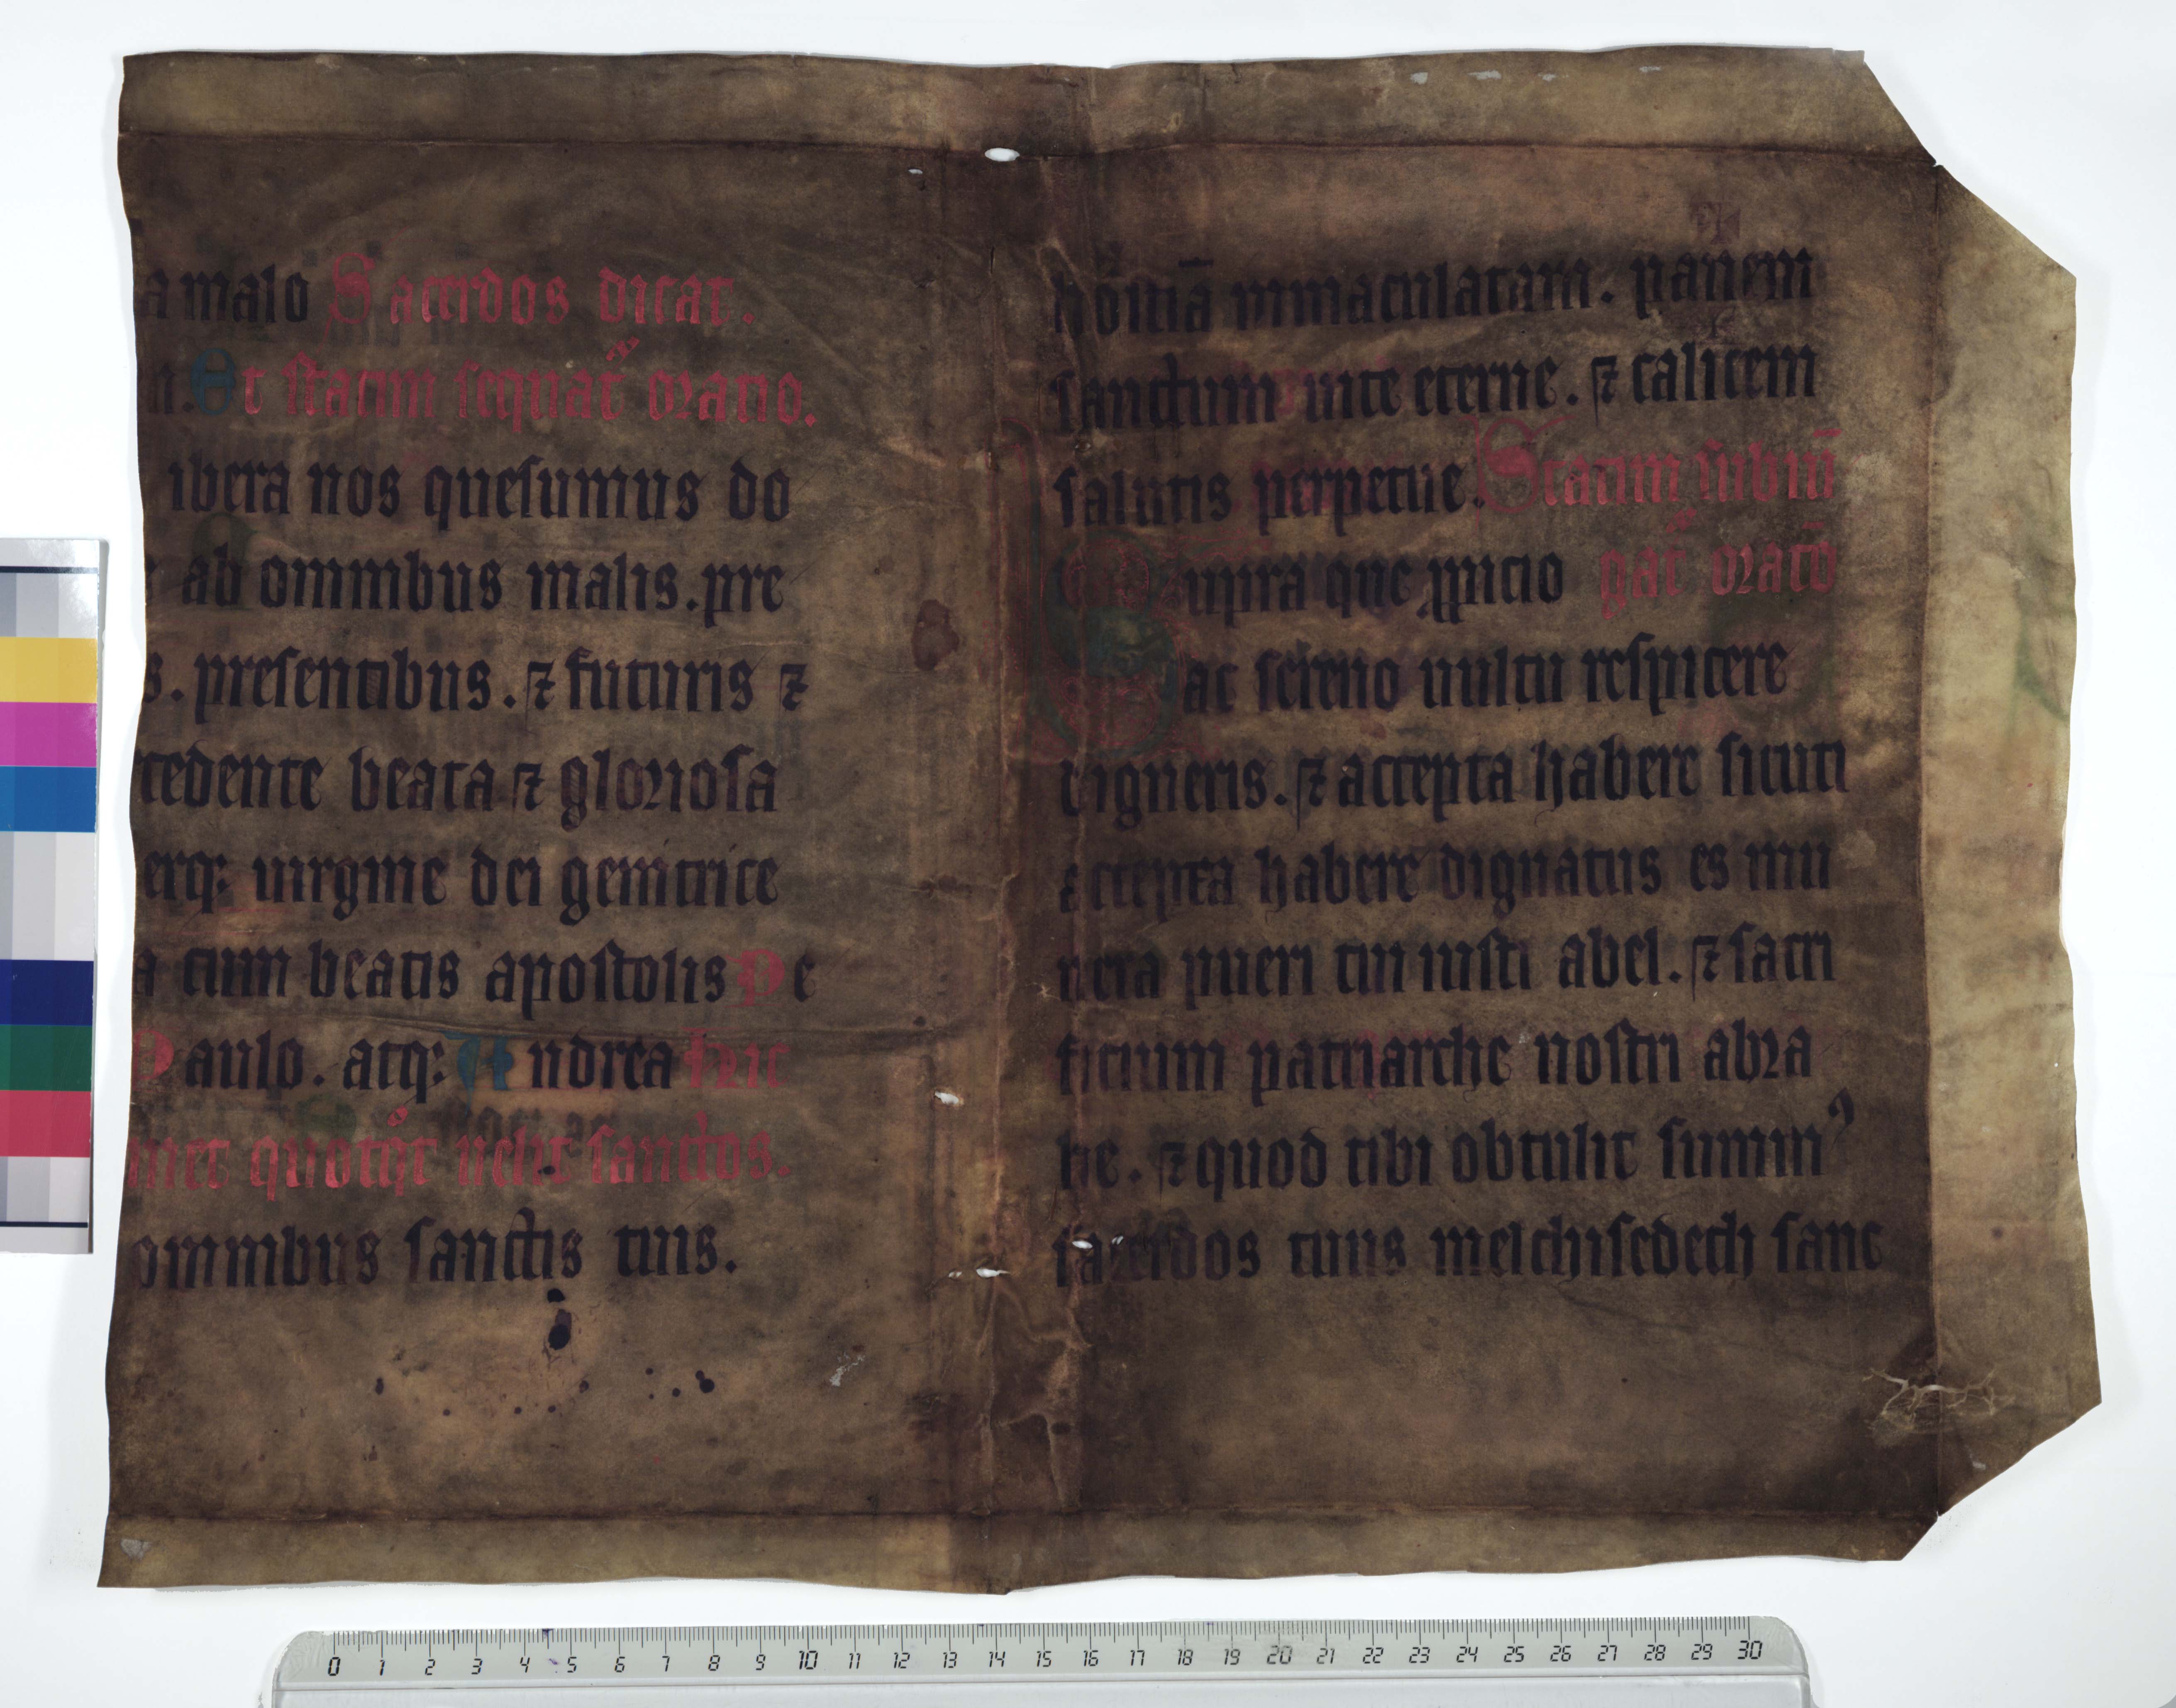 a malo Sacerdos dicat.
n. Et statim sequat᷑ oratio.
ibera nos quesumus do
ab omnibus malis. pre
s. presentibus. ⁊ futuris ⁊
cedente beata ⁊ gloriosa
erq; uirgine dei genitrice
a cum beatis apostolis Pe
Paulo. atq; Andrea hic
met quotq͛t uelit sanctos.
omnibus sanctis tuis.
hostiā immaculatam. panem
sanctum uite eterne. ⁊ calicem
salutis perpetue. Statim subiū
Supra que ꝓpicio gat᷑ oratō
ac sereno uultu respicere
digneris. ⁊ accepta habere sicuti
accepta habere dignatus es mu
nera pueri tui iusti abel. ⁊ sacri
ficium patriarche nostri abra
he. ⁊ quod tibi obtulit summꝰ
sacerdos tuus melchisedech sanc
0 1 2 3 4 5 6 7 8 9 10 11 12 13 14 15 16 17 18 19 20 21 22 23 24 25 26 27 28 29 30